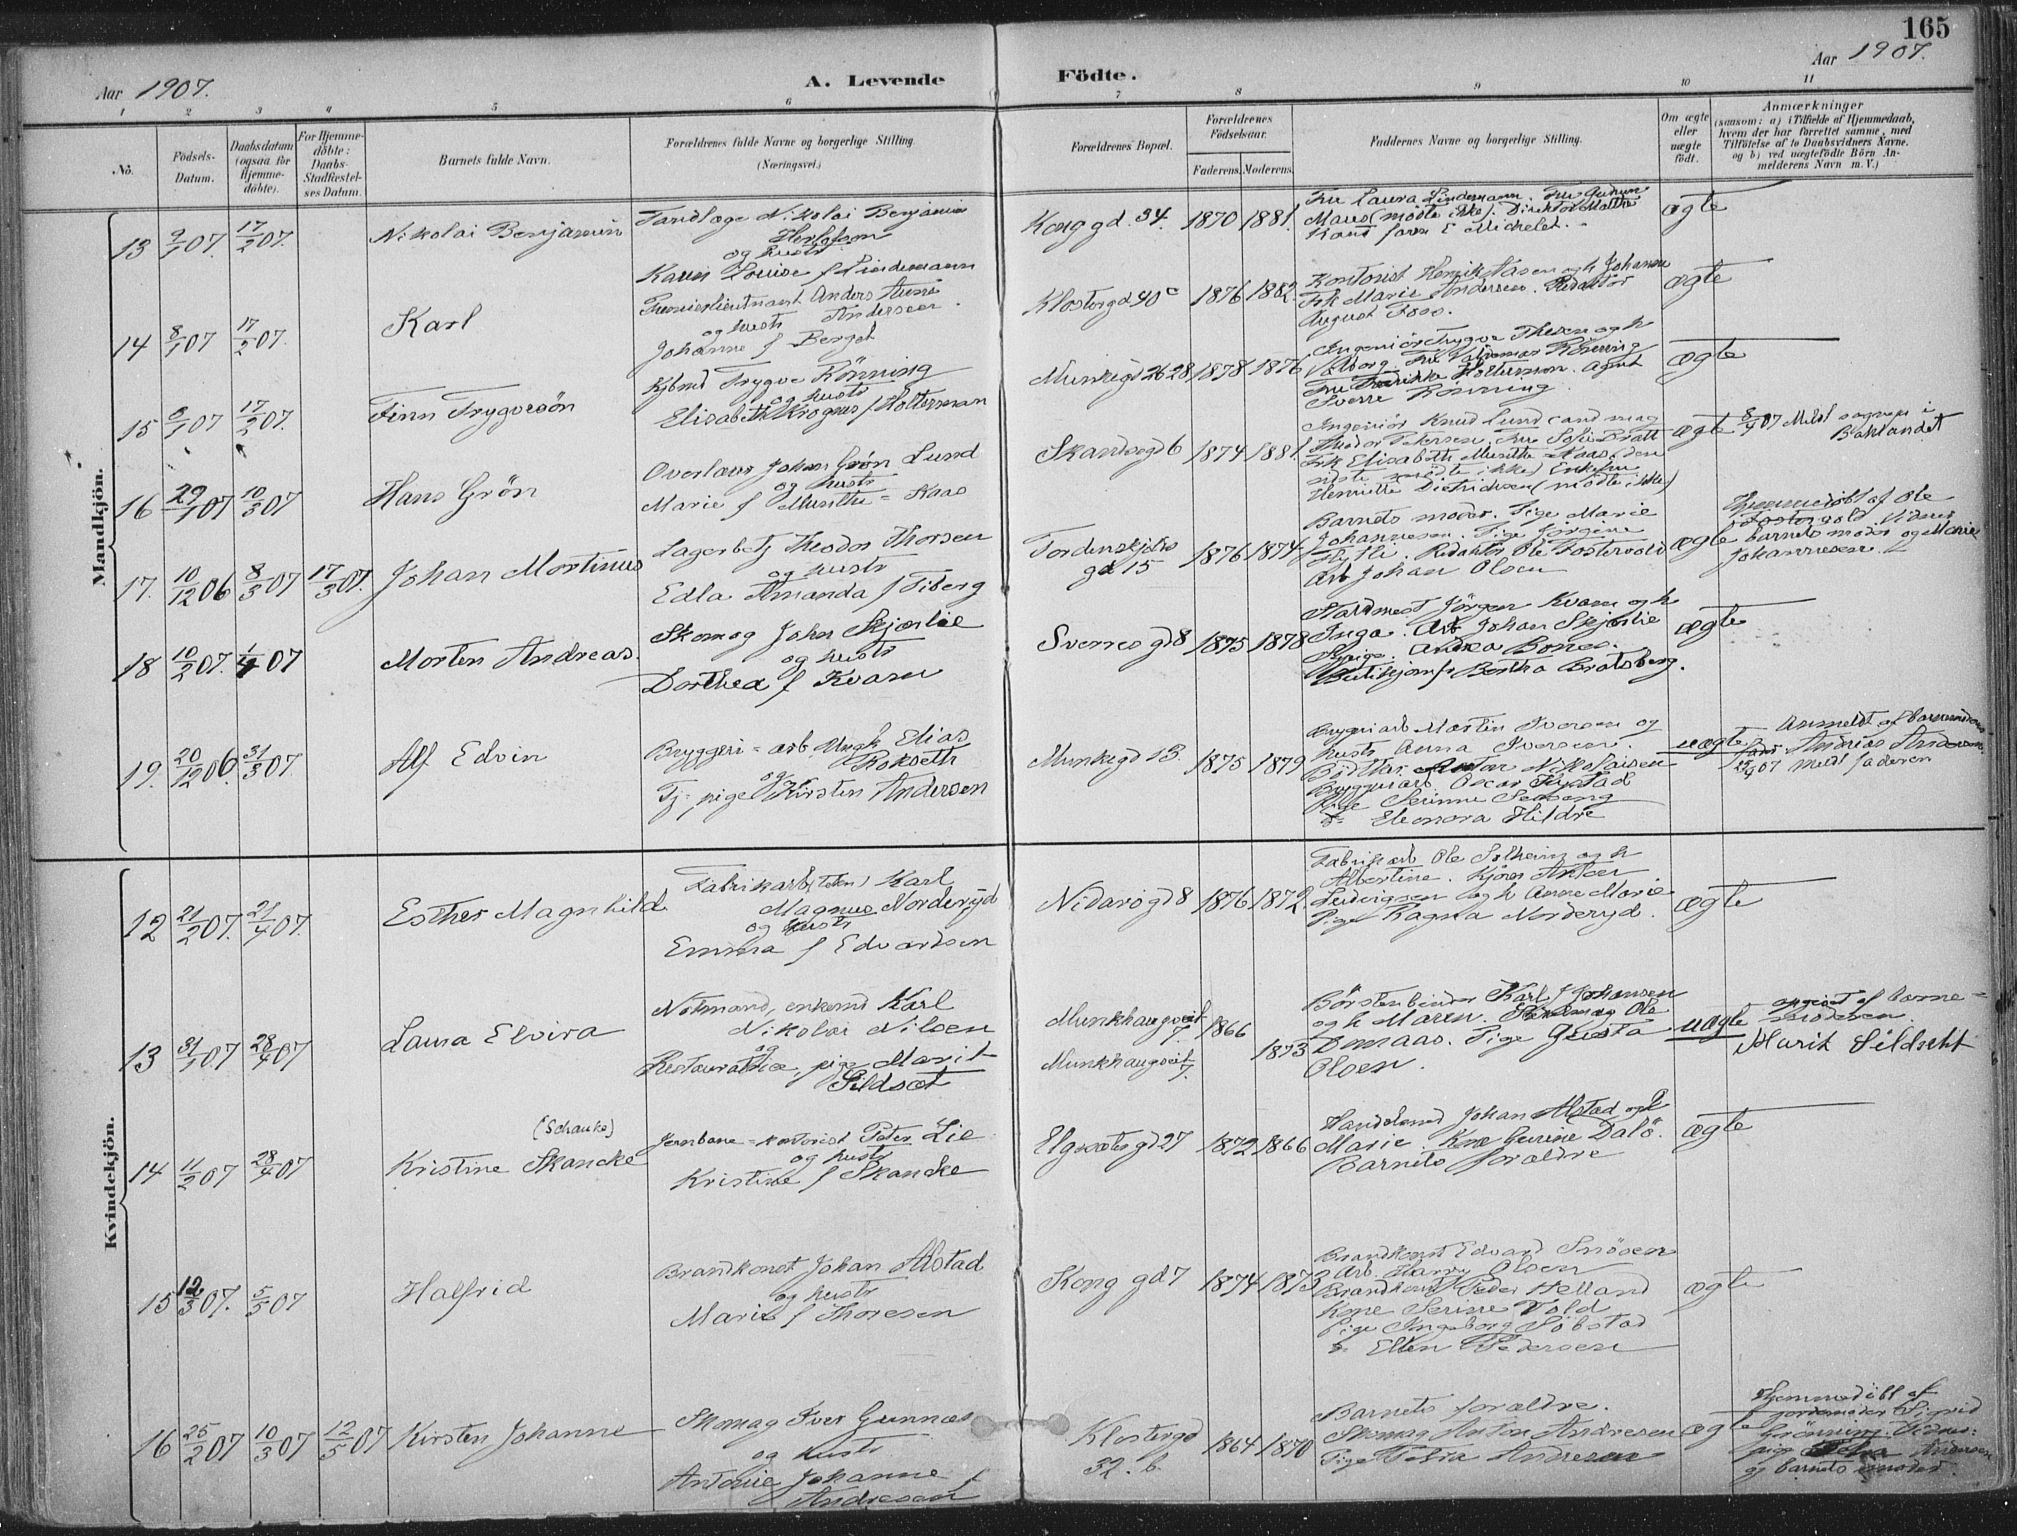 165
Aar 1907.
A. Levende Födte.
Aar 1907.
1 2 3 4 5 6 7 8 9 10 11
No.
Födsels-Datum.
Daabsdatum (ogsaa for Hjemme-döbte).
For Hjemme-döbte: Daabs-Stadfæstelses Datum.
Barnets fulde Navn.
Forældrenes fulde Navne og borgerlige Stilling. (Næringsvei.)
Forældrenes Bopæl.
Forældrenes Födselsaar.
Faderens. Moderens.
Faddernes Navne og borgerlige Stilling.
Om ægte eller uægte födt.
Anmærkninger
(saasom: a) i Tilfælde af Hjemmedaab, hvem der har forrettet samme, med Tilföielse af to Daabsvidners Navne. og b) ved uægtefödte Börn Anmelderens Navn m. V.)
Mandkjön.
13 9/1 07. 17/2 07. Nikolai Benjamin
Tandlæge Nikolai Benjamin
og hustr
Karen Louise f Lindemann
Konggd. 34. 1870 1881.
Fru Laura Lindemann. Fru Gudrun
(mødte ikke). Direktør
Michelet.
ægte
14 8/1 07 17/2 07. Karl
Premierlieutnant Anders
og hustr Andersen
Johanne f Berget
Klostergd 40c 1876 1882.
Kontorist Henrik og h Johanne
Frk Marie Andersen. Redaktör
August Foss.
ægte
15 8/1 07 17/2 07. Finn Trygvesön
Kjbmd Trygve Rönning
og hustr
Elisabeth Krogness f Holterman
Munkegd 26 28 1878 1876
Ingeniör Trygve Thesen og h
Valborg. Fru Rönning
Fru Fredrikke Holterman. Agent
Sverre Rönning
ægte
16 29/1 07 10/3 07 Hans Grön
Overlærer Johan Grön Lund
og hustr
Marie f Munthe-Kaas
Skansegd 6 1874 1881
Ingeniör Knud Lund cand mag
Theodor Petersen. Fru Sofie Bratt
Frk Elisabeth Munthe-Kaas, den
sidste mödte ikke) Enkefru
Henriette Dietrichson (mødte ikke)
ægte
8/4 07 Meld sognepr i
Baklandet
17. 10/12 06 8/3 07 17/3 07. Johan Mortinus
Lagerbetj Theodor Thorsen
og hustr
Edla Amanda f Fiberg
Tordenskjolds
gd 15 1876 1874
Barnets moder. Pige Marie
Johannesen. Pige Jörgine
Redaktör Ole
Arb Johan Olsen
ægte
Hjemmedöbt af Ole
Vidner
barnets moder og Marie
Johannesen.
18 10/2 07. 1/4 07 Morten Andreas.
Skomag John Skjærlie
og hustr
Dorthea f Kvam
Sverresgd 8 1875 1878
Jörgen Kvam og h
Inga. Arb Johan Skjærlie
Andrea Bones.
Butikjomfr Bertha Bratsberg.
ægte
19. 20/12 06. 31/3 07 Alf Edvin
Bryggeri-arb Ungk Elias
Rokseth
og
Tj-pige Kirsten Andersen
Munkegd 13. 1875 1879
Bryggeriarb Martin Iversen og
hustr Anna Iversen.
Bödtker Anton Nikolaisen
Bryggeriarb Oscar
Pige Serinne
do Eleonora Hildre
uægte
Anmeldt af barnemoderens
fader Andreas Andersen
07 Meldt faderen
Kvindekjön.
12 21/2 07. 21/4 07. Esther Magnhild
Fabrikarb Karl
Magnus Norderyd
og hustr
Emma f Edvardsen
Nidarosgd 8 1876 1872.
Fabrikarb Ole Solheim og h
Albertine. Kjörer Anton
Ludvigsen og h Anne Marie
Pige Ragna Norderyd.
ægte
13 31/1 07 28/4 07 Laura Elvira
Notmand, enkemd Karl
Nikolai Nilsen
og
pige Marit
Sildset
Munkhaugveit
7. 1866
Munkhaugveit
7. 1873
Börstenbinder Karl Johansen
og h Maren. Skomag Ole
Dmaas. Pige Gusta
Olsen.
uægte
opgivet af barne-
moderen.
Marit Sildseth
14 11/2 07 28/4 07 Kristine Skancke
(Schanke)
Jernbane-kontorist Peter Lie
og hustr
Kristine f Skancke
Elgesætergd 27 1872 1866
Handelsmd Johan Alstad og h
Marie. Kone Gurine Dalö.
Barnets forældre
ægte
15 12/3 07. 5/5 07 Halfrid
Brandkonst Johan Alstad
og hustr
Marie f Thoresen
Konggd 7 1874 1873
Brandkonst Edvard Snösen
Arb. Harry Olsen
Brandkonst Peder Helland
Kone Serine Vold
Pige Ingeborg Löbstad
do Ellen Pedersen
ægte
16 25/2 07 10/3 07 12/5 07 Kirsten Johanne
Skomag Iver Gunnes
og hustr
Antonie Johanne f
Andresen
Klostergd
32. b. 1864 1870
Barnets forældre.
Skomag Anton Andresen
Pige Petra Andresen
ægte
Hjemmedöbt af
jordemoder Sigrid
Grönning. Vidner:
pige Petra Andresen
og barnets moder.